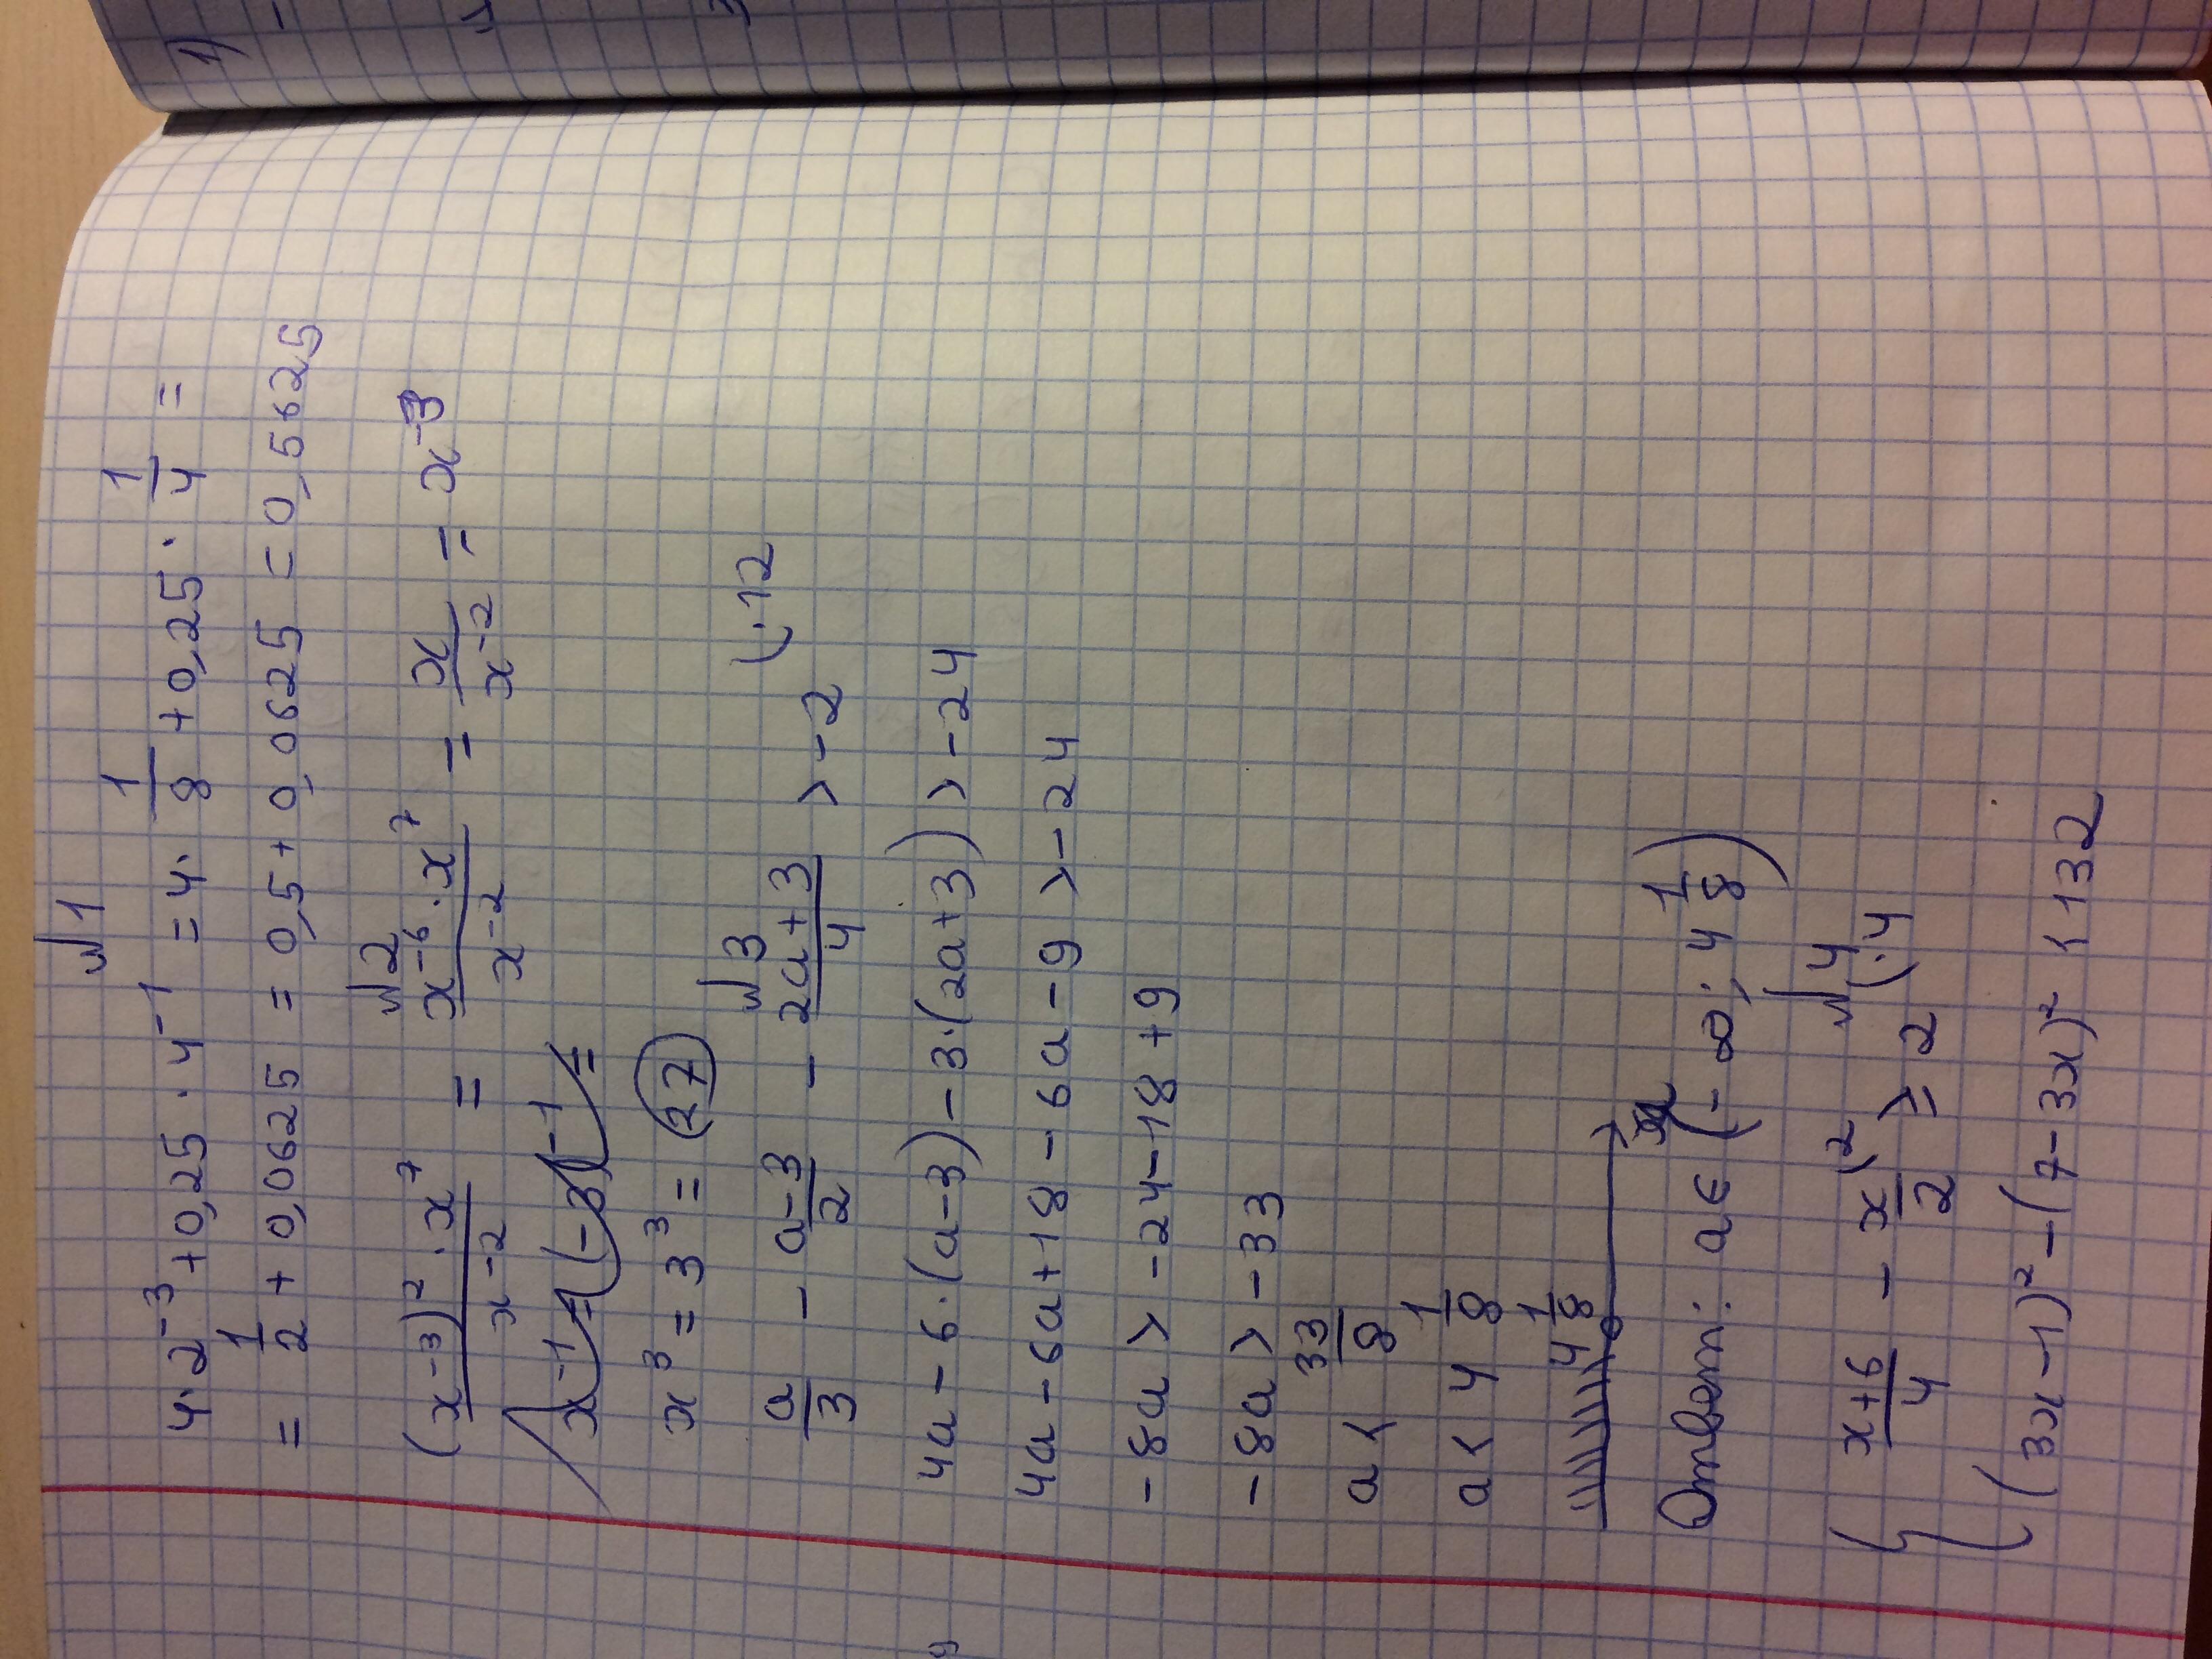 №1
4·2⁻³+0,25·4⁻¹ = 4·1/8+0,25·1/4=
=1/2+0,0625=0,5+0,0625=0,5625
№2
(x⁻³)²·x⁷/x⁻² = x⁻⁶·x⁷/x⁻² = x/x⁻² = x⁻³
x³=3³=27
№3
a/3 - a-3/2 - 2a+3/4 > -2 (·12
4a-6·(a-3)-3·(2a+3)>-24
4a-6a+18-6a-9>-24
-8a>-24-18+9
-8a>-33
a<33/8
a<4 1/8
4 1/8
Ответ: a∈(-∞; 4 1/8)
№4
{ x+6/4 - x⁽²/2 ≥ 2 (·4
(3x-1)²-(7-3x)²<132
1)